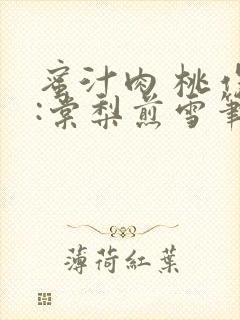 蜜汁肉桃作
:棠梨煎雪筆
薄荷紅葉